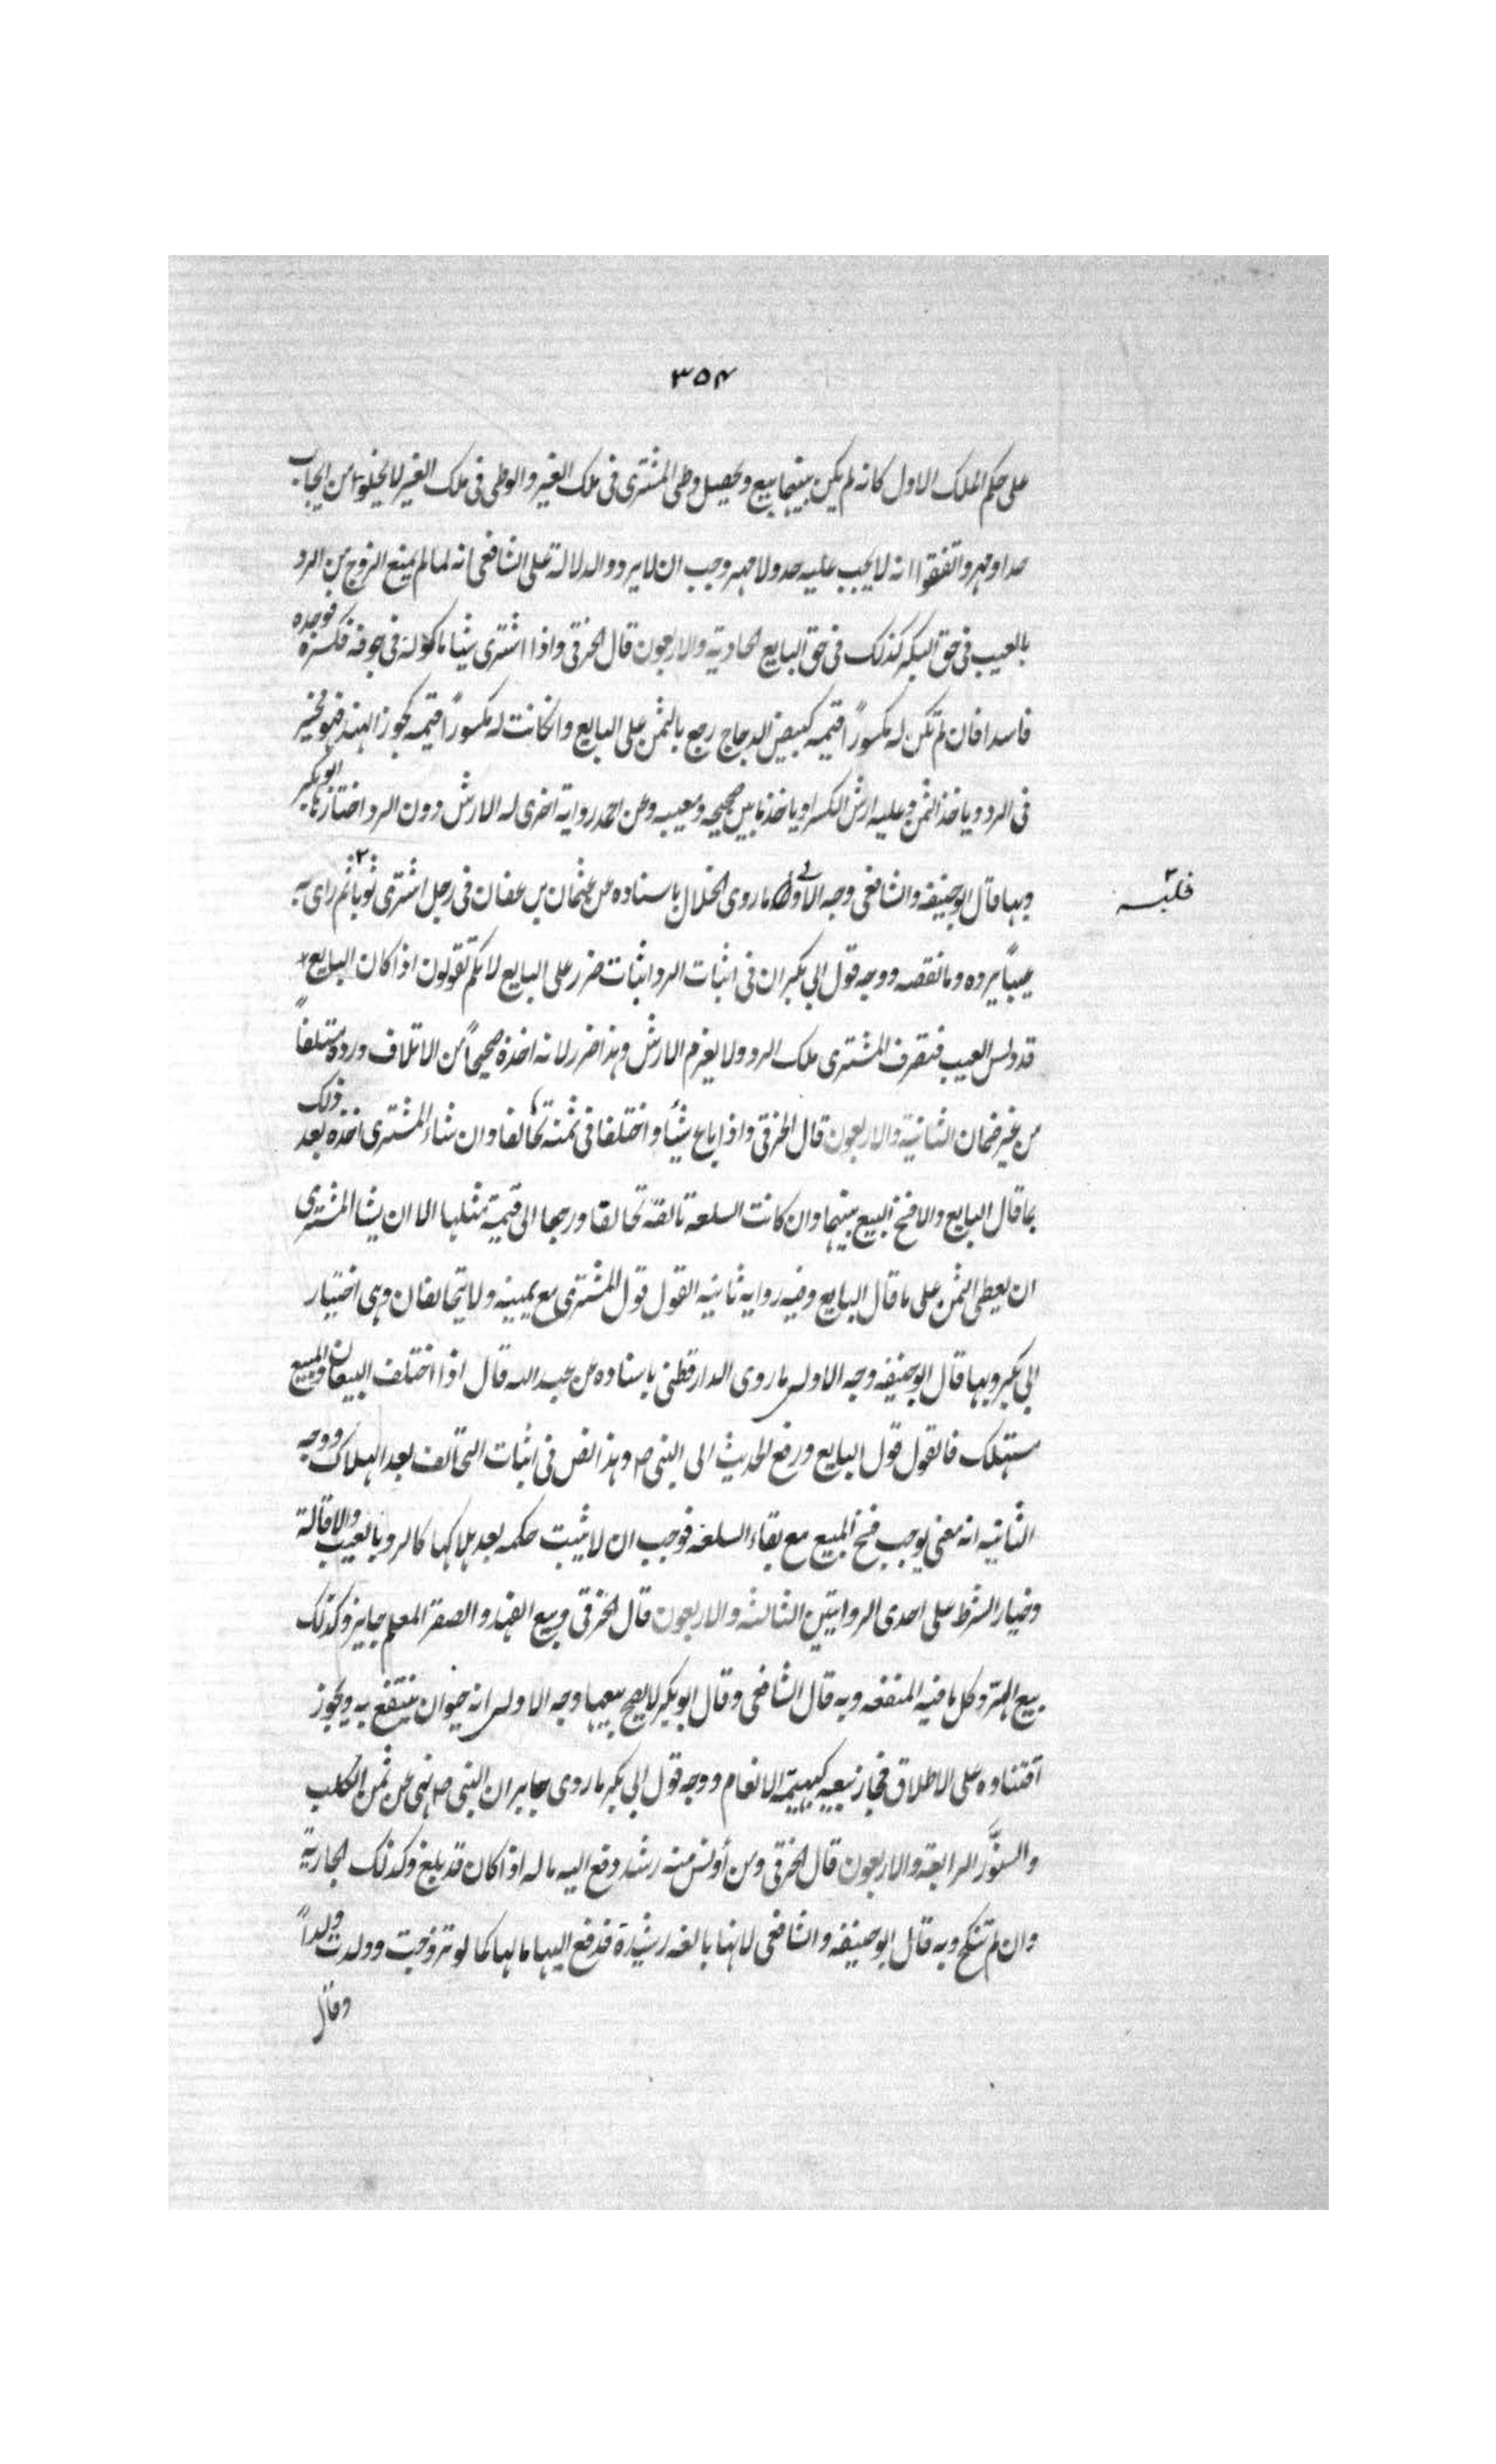 ٣٥٤
على حكم الملك الاول كانه لم يكن بينهما بيع ويحصل وطى المشترى فى ملك الغير والوطى فى ملك الغير لا يخلو من ايجاب
حد او مهر واتفقوا انه لا يجب عليه حد ولا مهر وجب ان لا يرد والدلالة على الشافعى انه لما لم يمنع الزوج من الرد
بالعيب فى حق البكر كذلك فى حق البايع الحادية والاربعون قال الخرقى واذا اشترى شيئا ماكوله فى جوفه فكسره فوجده
فاسدا فان لم تكن له مكسوراً قيمه كبيض الدجاج رجع بالثمن على البايع وان كانت له مكسوراً قيمه كجوز الهند فهو مخير
فى الرد وياخذ الثمن وعليه ارش الكسر او ياخذ ما بين صحيحه ومعيبه وعن احمد رواية اخرى له الارش دون الرد اختارها ابو بكر
وبها قال ابو حنيفه والشافعى وجه الاولى ما روى الخلال باسناده عن عثمان بن عفان فى رجل اشترى ثوبا ٢ ثم راى به
فلبسه ٢
عيباً يرده وما نقصه ووجه قول ابى بكر ان فى اثبات الرد اثبات ضرر على البايع لانكم تقولون اذا كان البايع
قد دلس العيب فتصرف المشترى ملك الرد ولا يغرم الارش وهذا ضرر لانه اخذه صحيحاً من الاتلاف ورده متلفاً
من غير ضمان الثانية والاربعون قال الخرقى واذا باع شيئاً واختلفا فى ثمنه تحالفا وان شاء المشترى اخذه بعد ذلك
بما قال البايع والا فسخ البيع بينهما وان كانت السلعه تالفه تحالفا ورجعا الى قيمة مثلها الا ان يشا المشترى
ان يعطى الثمن على ما قال البايع وفيه رواية ثانيه القول قول المشترى مع يمينه ولا يتحالفان وهى اختيار
ابى بكر وبها قال ابو حنيفه وجه الاولى ما روى الدارقطنى باسناده عن عبد الله قال اذا اختلف البيعان والمبيع
مستهلك فالقول قول البايع ورفع الحديث الى النبى ص وهذا نص فى اثبات التحالف بعد الهلاك ووجه
الثانيه انه معنى يوجب فسخ المبيع مع بقاء السلعه فوجب ان لا يثبت حكمه بعد هلاكها كالرد بالعيب والاقالة
وخيار الشرط على احدى الروايتين الثالثه والاربعون قال الخرقى وبيع الفهد والصقر المعلم جايز وكذلك
بيع الهر وكل ما فيه المنفعه وبه قال الشافعى وقال ابو بكر لا يصح بيعها وجه الاولى انه حيوان ينتفع به ويجوز
اقتناوه على الاطلاق فجاز بيعه كبهيمة الانعام ووجه قول ابى بكر ما روى جابر ان النبى ص نهى عن ثمن الكلب
والسنَّور الرابعة والاربعون قال الخرقى ومن أونس منه رشد دفع اليه ماله اذا كان قد بلغ وكذلك الجارية
وان لم تنكح وبه قال ابو حنيفه والشافعى لانها بالغه رشيدة فدفع اليها مالها كما لو تزوجت وولدت ولداً
وقال